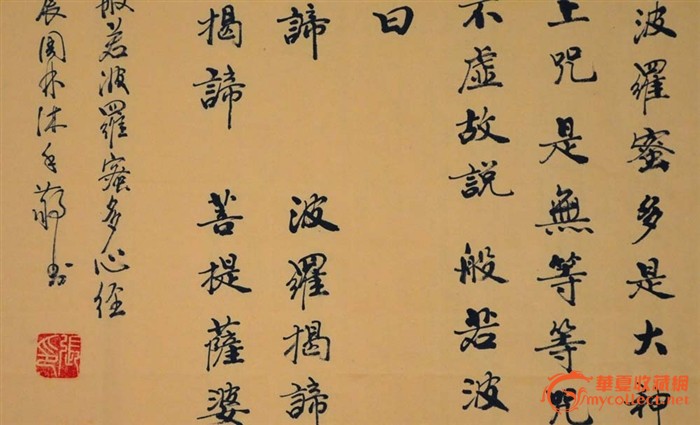 波羅蜜多是大神
上咒是無等等咒
不虛故説 般若波
曰
諦 波羅揭諦
揭諦 菩提薩婆
般若波羅蜜多心經
辰图水沐手敬书
張
印
華夏收藏網
mycollect.net